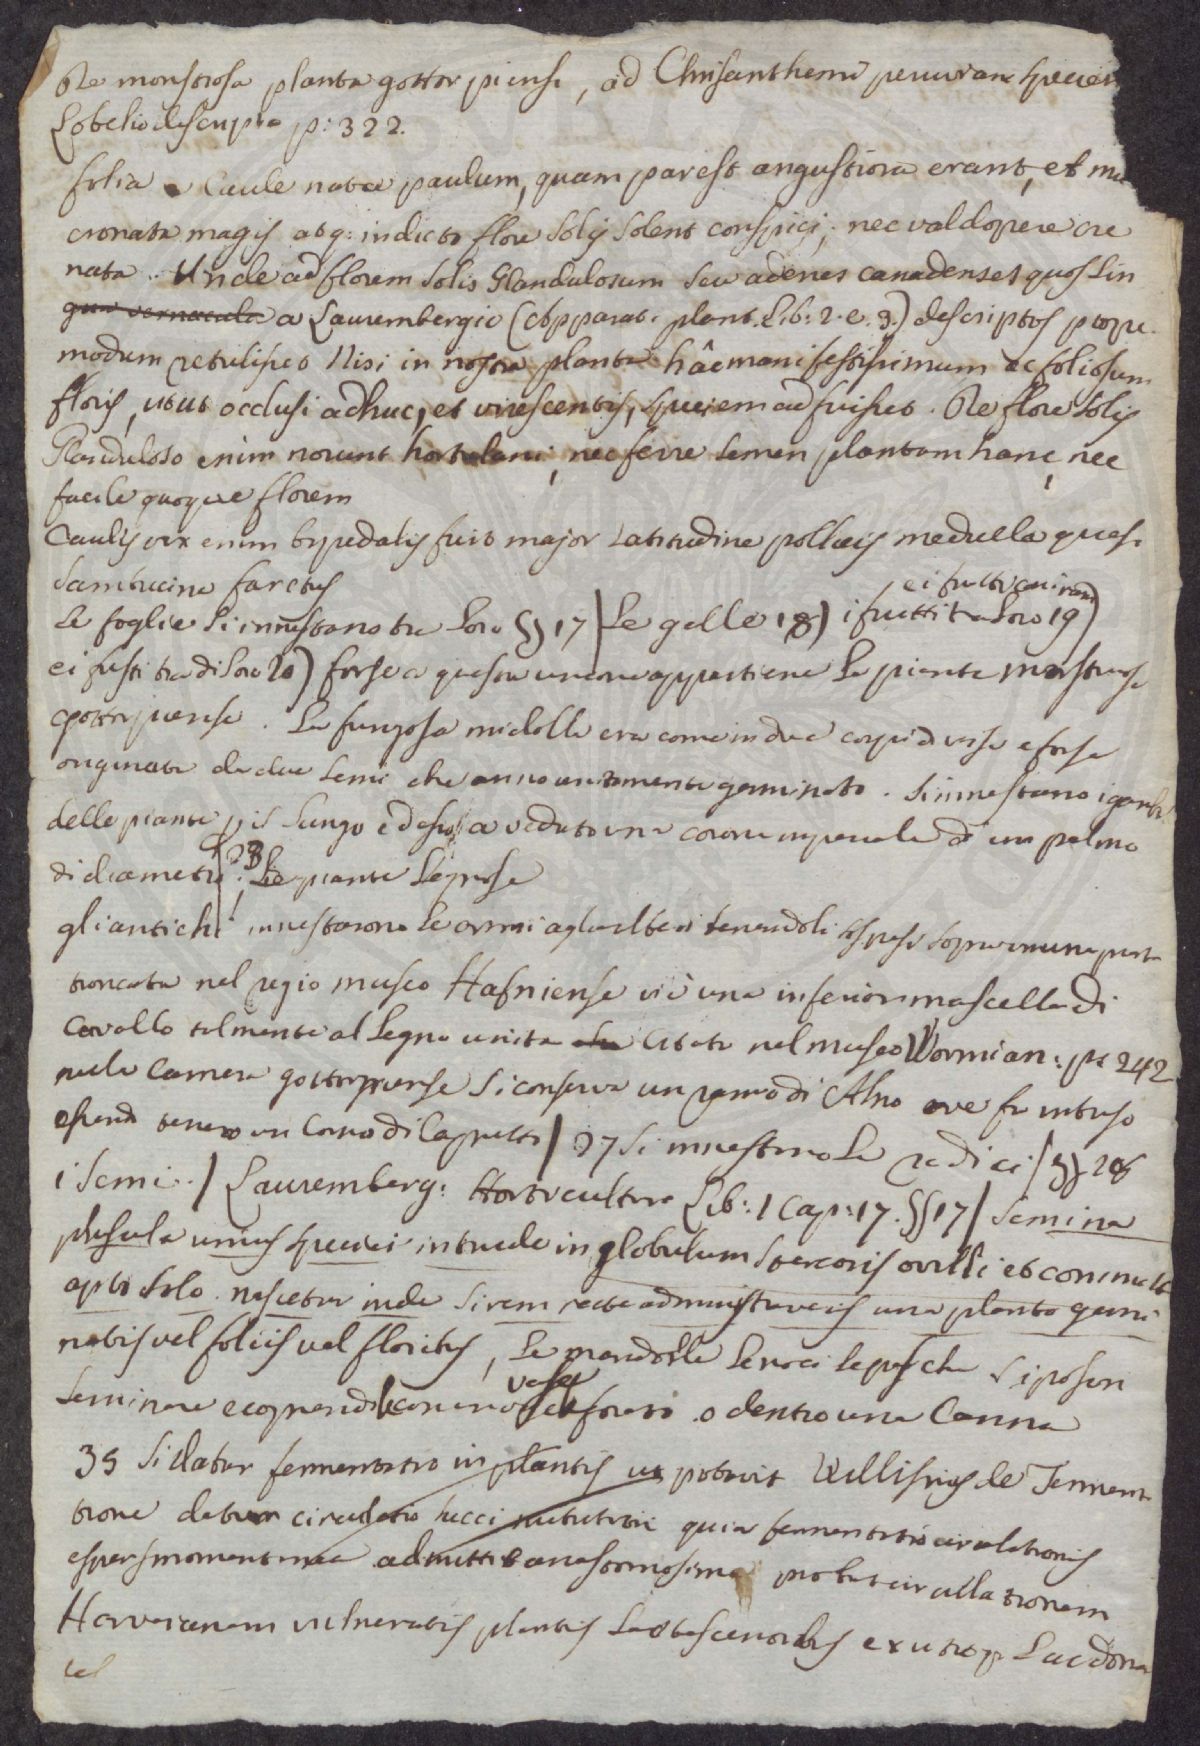 De monstrosa planta gottorpiensi, ad Chrisanthemi peruviani speciem
Lobelio descripta p: 322.
folia a Caule nata paulum, quam par est angustiora erant, et mu
cronata magis atq: in dicto flore Solis solent conspici, nec valdopere cre
nata. Unde ad florem Solis Glandulosum seu adenes canadenses quos lin
gua vernacula a Laurembergio (Apparat. plant. Lib: 2. c. 3.) descriptos prope
modum retulisset Nisi in nostra planta hac manifestissimum ac foliosum
floris, utut occlusi adhuc, et virescentis, speciem adfuisset. De flore Solis
Glanduloso enim norunt hortulani, nec ferre semen plantam hanc, nec
facile quoque florem
Caulis vix enim bipedalis fuit major latitudine pollicis medulla quasi
Sambucina farctus
Le foglie si innestano tra loro §§ 17) Le gelle 18) i frutti tra loro 19)
ei frutti coi rami
ei fusti tra di loro 20) forse a questa unione appartiene la pianta monstruosa
gottorpiense. La fungosa midolla era come in due corpi divisa e forse
originata da due semi che anno unitamente germinato. S'innestano i gambi
delle piante a veduto una corona imperiale di un palmo
di diametro. 23 Le piante leprose
gli antichi innestarono le armi agl'alberi tenendoli sospesi sopra una parte
troncata nel regio museo Hafniense vi è una inferior mascella di
Cavallo talmente al legno unita citata nel museo Wormian: pa 242
nela Camera gottorpiense si conserva un ramo di Alno ove fu intruso
essend tenero un Corno di Capretto / 27 Si innestano le radici / §§ 28
i semi. / Lauremberg: Horticultura Lib: 1 Cap: 17. §§ 17 / Semina
pluscula unius speciei intrude in globulum stercoris ovilli et committe
apto solo. nascetur inde si rem recte administraveris una planta gemi
natis vel foliis vel floribus, le mandorle le noci le pesche si posson
seminare
vaso
forato o dentro una Canna
35 Si datur fermentatio in plantis ut putavit Willisius de Ferment
tione datur circulatio succi nutritii quia fermentatio circulationis
expers momentanea admittit anastomosim probat circullationem
Harveianam vulneratis plantis lactescentibus ex utroq. Lac dona